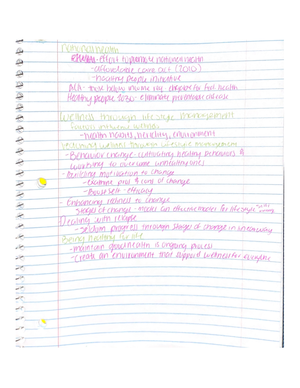 National health
- effort to promote national health
- affordable care act (2010)
- Healthy people initiative
ACA - that helps income
Healthy people 2030 - eliminate preventable disease
Wellness through lifestyle management
Factors influence wellness
- health habits, heredity, environment
Reaching wellness through lifestyle management
- Behavior change - cultivating healthy behaviors &
working to overcome unhealthy ones
- Building motivation to change
- examine pros & cons of change
- Boost self-efficacy
- Enhancing readiness to change
Stages of change - model can effective for lifestyle
Dealing with relapse
- seldom progress through stages of change in
Being healthy for life
- maintain good health is ongoing process
- Create an environment that support wellness for everyone